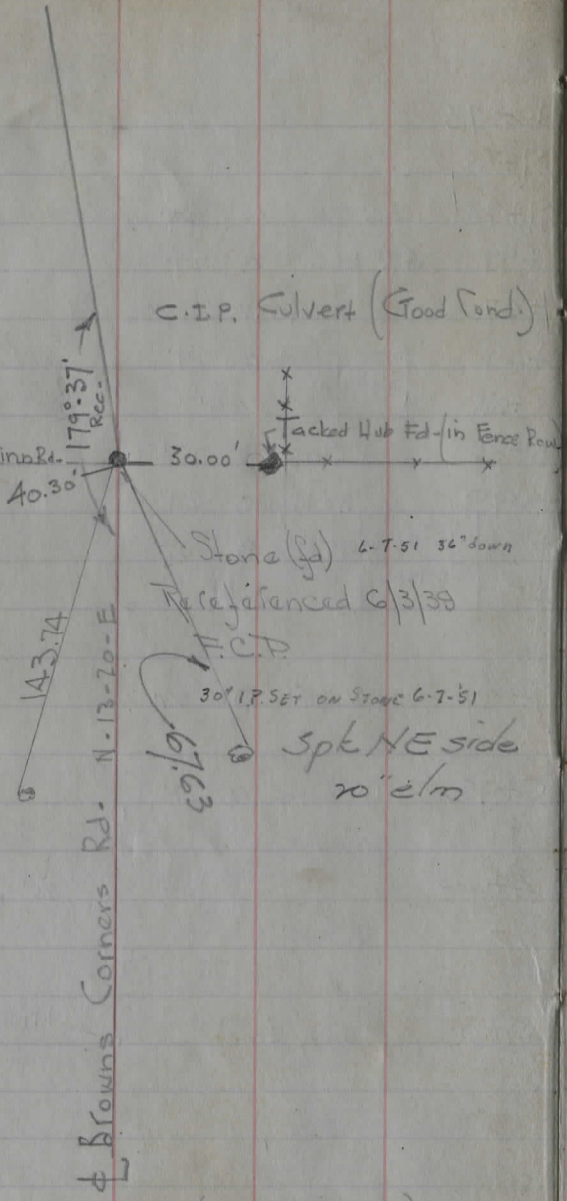 C.I.P. Culvert (Good Cond.)
179°-37'
Rec.
Tacked Hub Fd-(in Fence Row
Rd-
30.00'
40.30
Stone (fd) 6-7-51 36" down
Rereferenced 6/3/38
30" I.P. SET ON STONE 6-7-51
67.63
143.74
Spk NE side
20" elm
℄ Browns Corners Rd- N-13-20-E